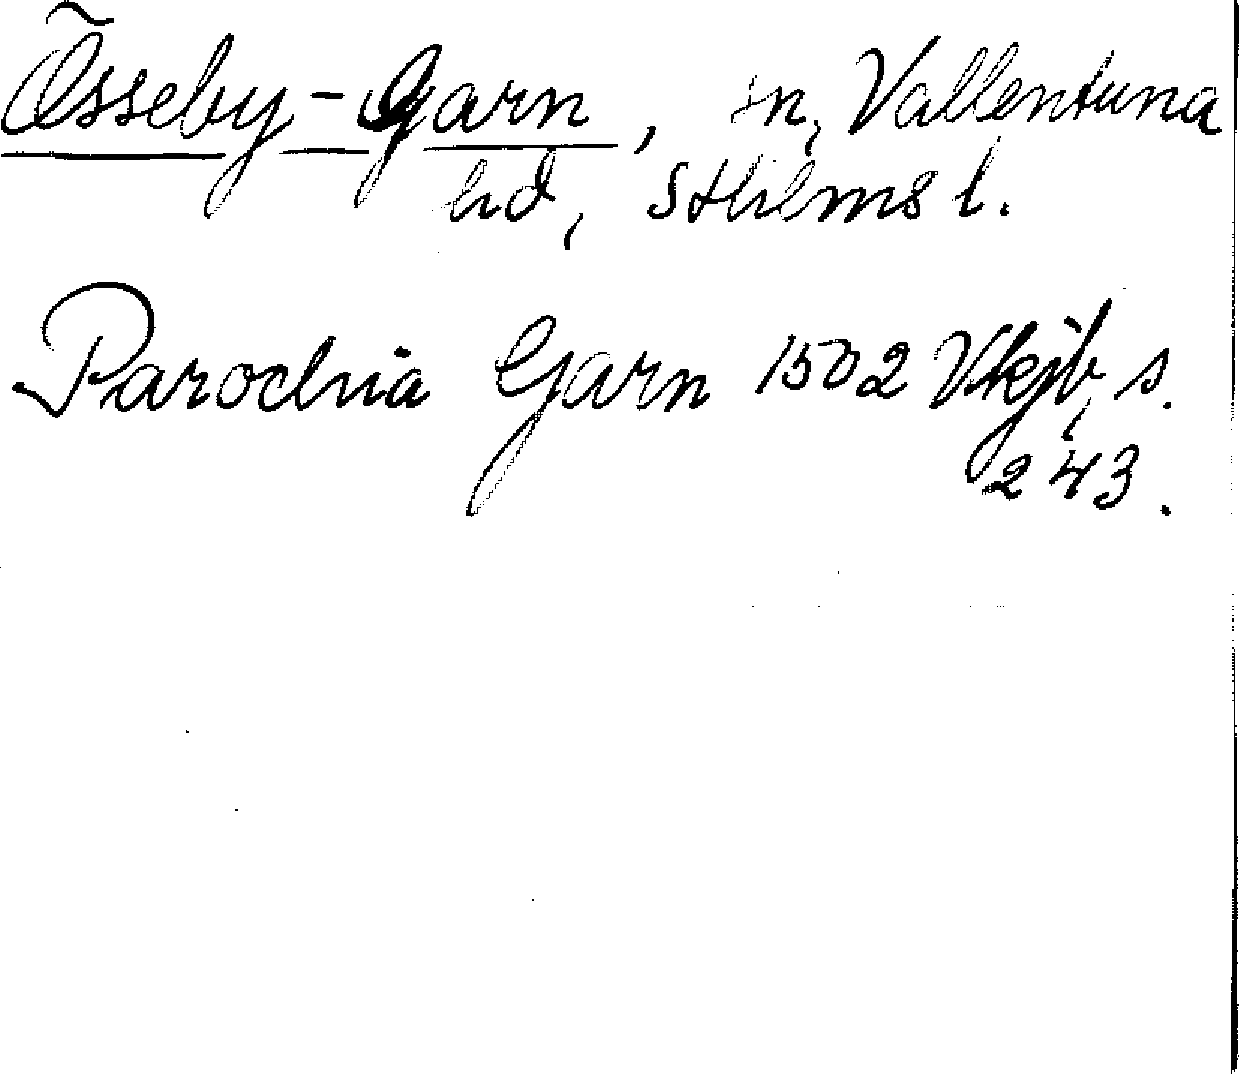 Össeby-Garn, sn, Vallentuna
hd, Sthlms l.
Parochia Garn 1502 Vkjb, s.
243.